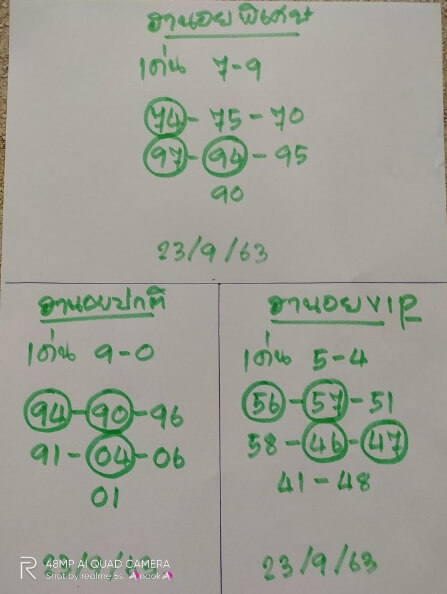 ฮานอยพิเศษ
เด่น 7-9
74-75-70
97-94-95
90
23/9/63
ฮานอยปกติ
เด่น 9-0
94-90-96
91-04-06
01
23/9/63
ฮานอยVIP
เด่น 5-4
56-57-51
58-46-47
41-48
23/9/63
48MP AI QUAD CAMERA
Shot by realme 5s